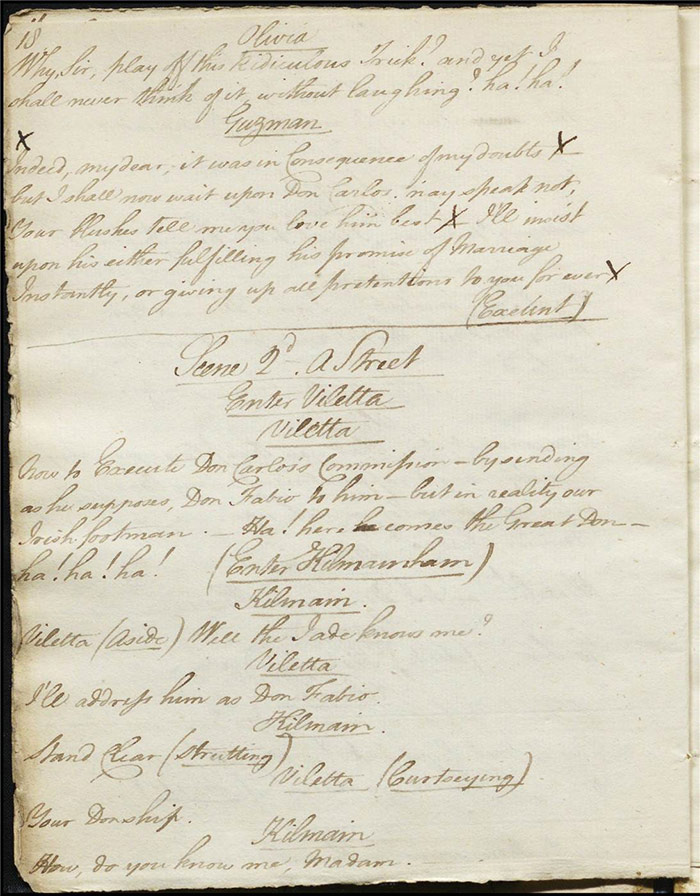 18
Olivia
Why, Sir, play off this Ridiculous Trick? and yet I
shall never think of it without laughing? ha! ha!
Guzman
X
Indeed, my dear, it was in Consequence of my doubts X
but I shall now wait upon Don Carlos. nay speak not,
Your blushes tell me you love him best X I'll insist
upon his either fulfilling his promise of Marriage
Instantly, or giving up all pretentions to you for ever X
(Exeunt)
Scene 2d. A Street
Enter Viletta
Viletta
Now to Execute Don Carlos's Commission - by sending
as he supposes, Don Fabio to him - but in reality our
Irish footman. - Ha! here comes the Great Don -
ha! ha! ha! (Enter Kilmainham)
Kilmain.
Viletta (Aside) Will the Jade know me?
Viletta
I'll address him as Don Fabio.
Kilmain.
Stand Clear (Strutting)
Viletta (Curtseying)
Your Donship.
Kilmain
How, do you know me, Madam.